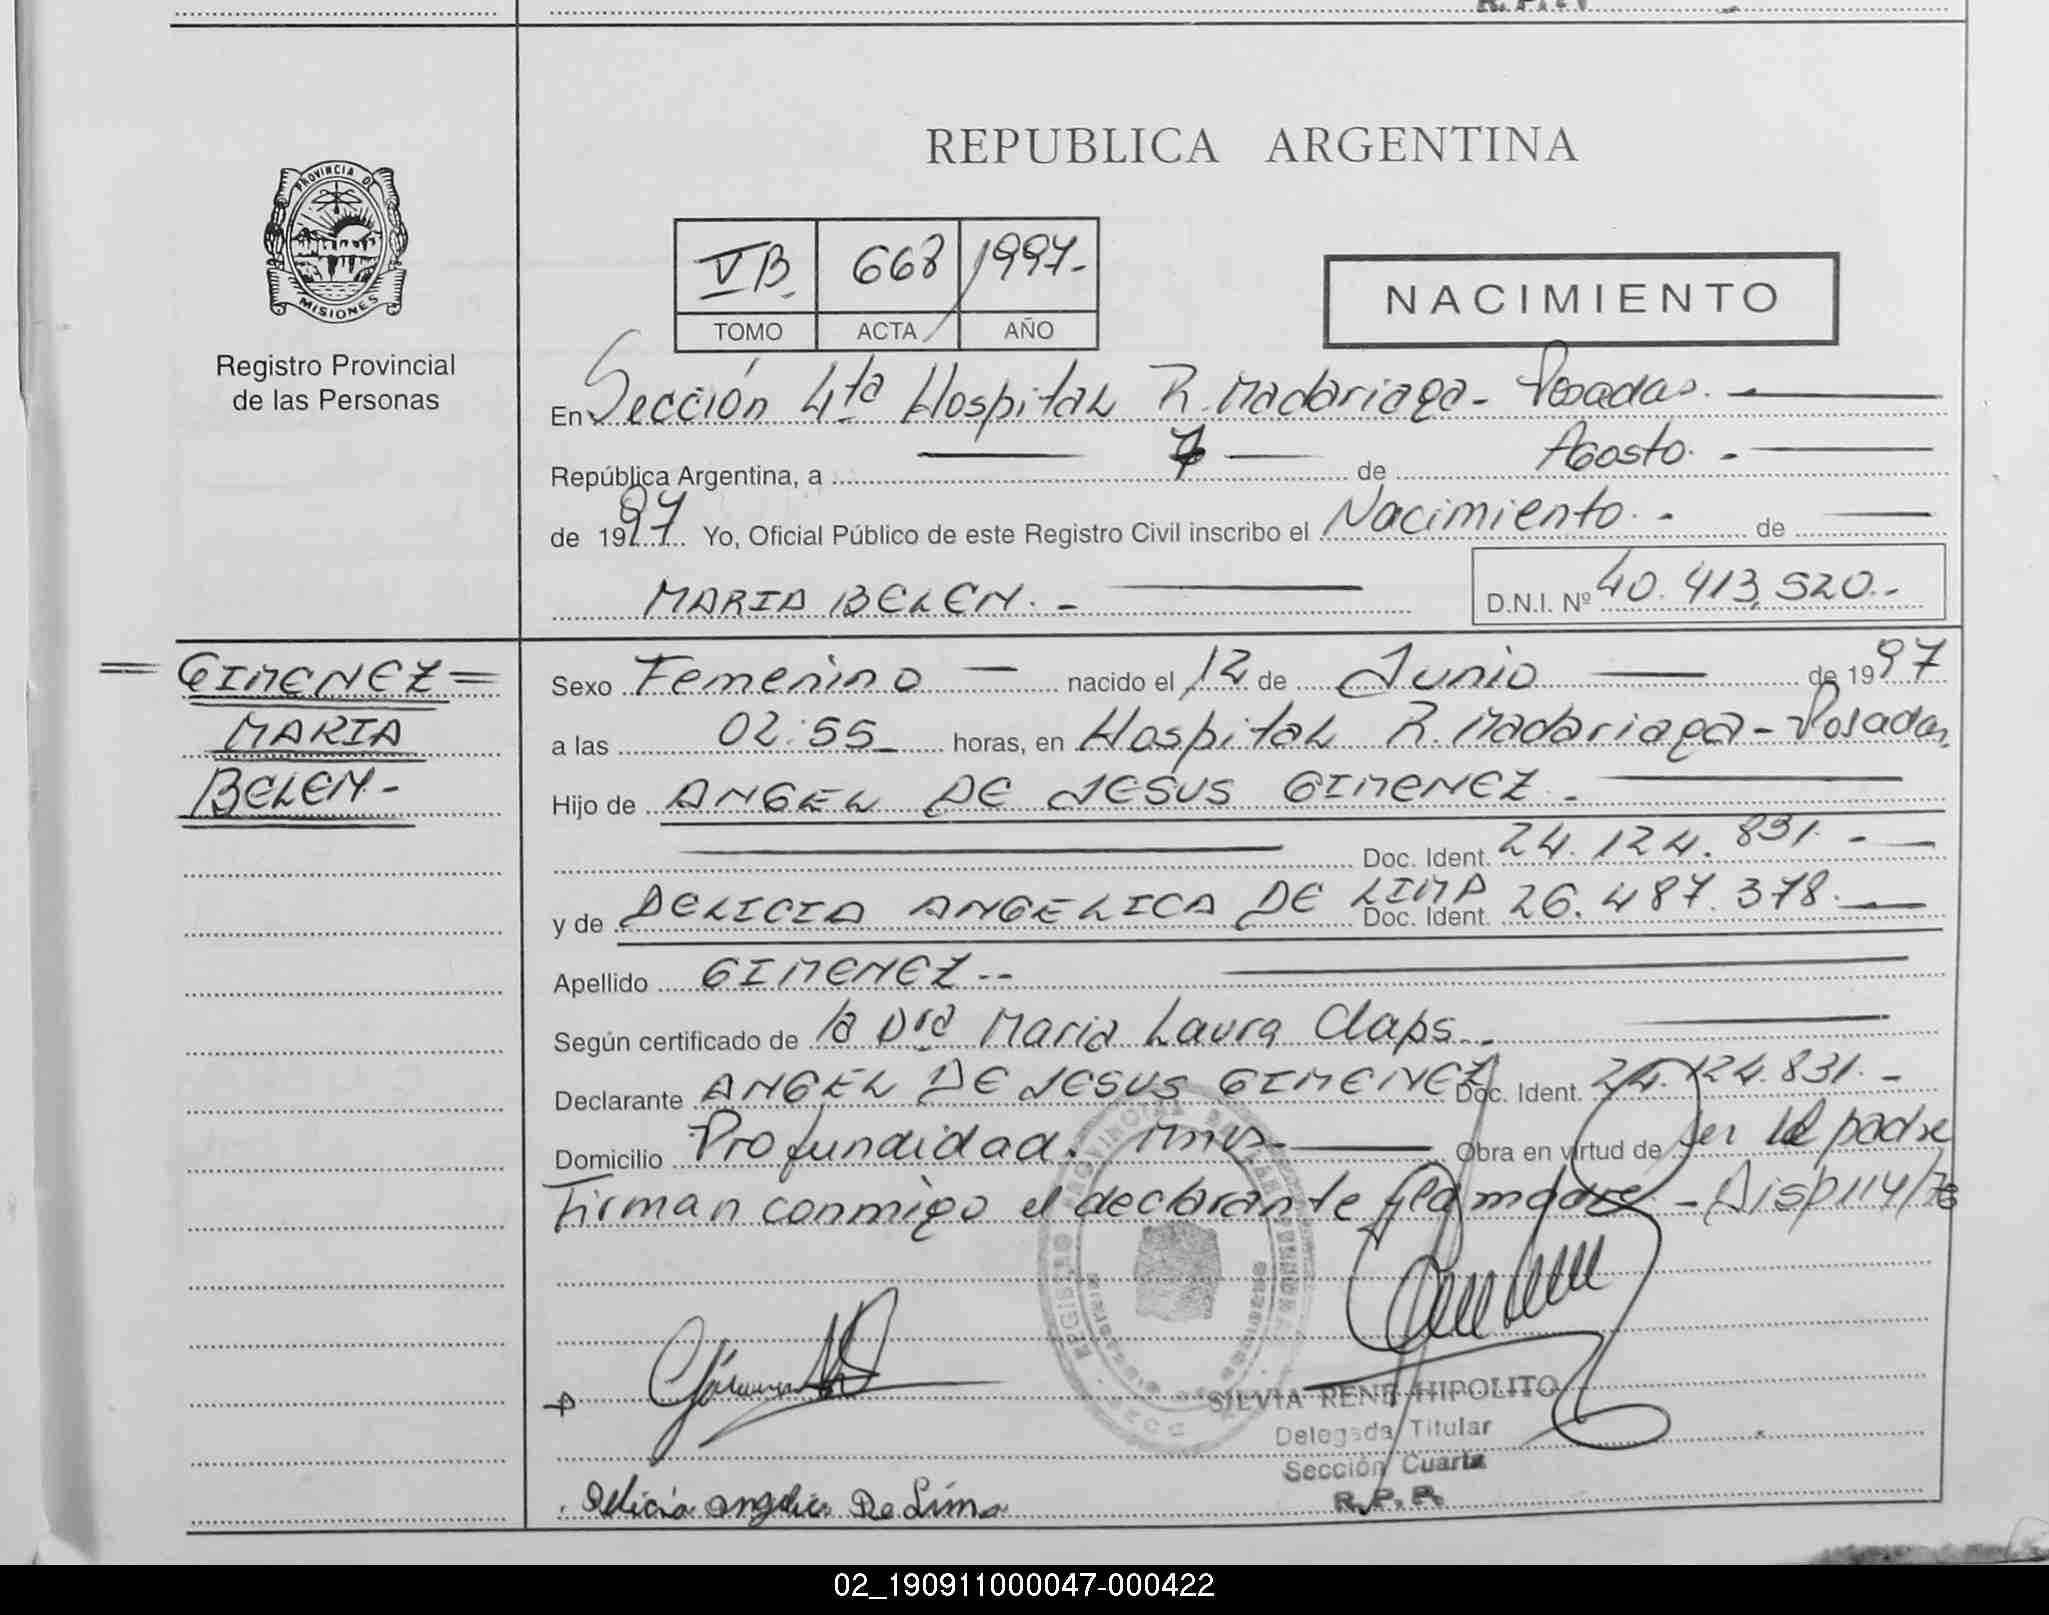 REPUBLICA ARGENTINA
PROVINCIA DE
MISIONES
Registro Provincial
de las Personas
VB. 668 1997.-
TOMO ACTA AÑO
NACIMIENTO
En Sección 4ta Hospital R. Madariaga - Posadas. -
República Argentina, a 7 de Agosto. -
de 1997 Yo, Oficial Público de este Registro Civil inscribo el Nacimiento. - de
MARIA BELEN. - D.N.I. Nº 40.413.520.-
= GIMENEZ =
MARIA
BELEN -
Sexo Femenino - nacido el 12 de Junio de 1997
a las 02:55 horas, en Hospital R. Madariaga - Posadas,
Hijo de ANGEL DE JESUS GIMENEZ. -
Doc. Ident. 24.124.831. -
y de DELICIA ANGELICA DE LIMA Doc. Ident. 26.487.378.
Apellido GIMENEZ --
Según certificado de la Dra Maria Laura Claps. -
Declarante ANGEL DE JESUS GIMENEZ Doc. Ident. 24.124.831. -
Domicilio Profundidad. Mnes. - Obra en virtud de ser el padre
Firman conmigo el declarante y la madre - Disp 114/76
SILVIA RENE HIPOLITO
Delegada Titular
Sección Cuarta
R.P.P.
Delicia Angelica De Lima
02_190911000047-000422